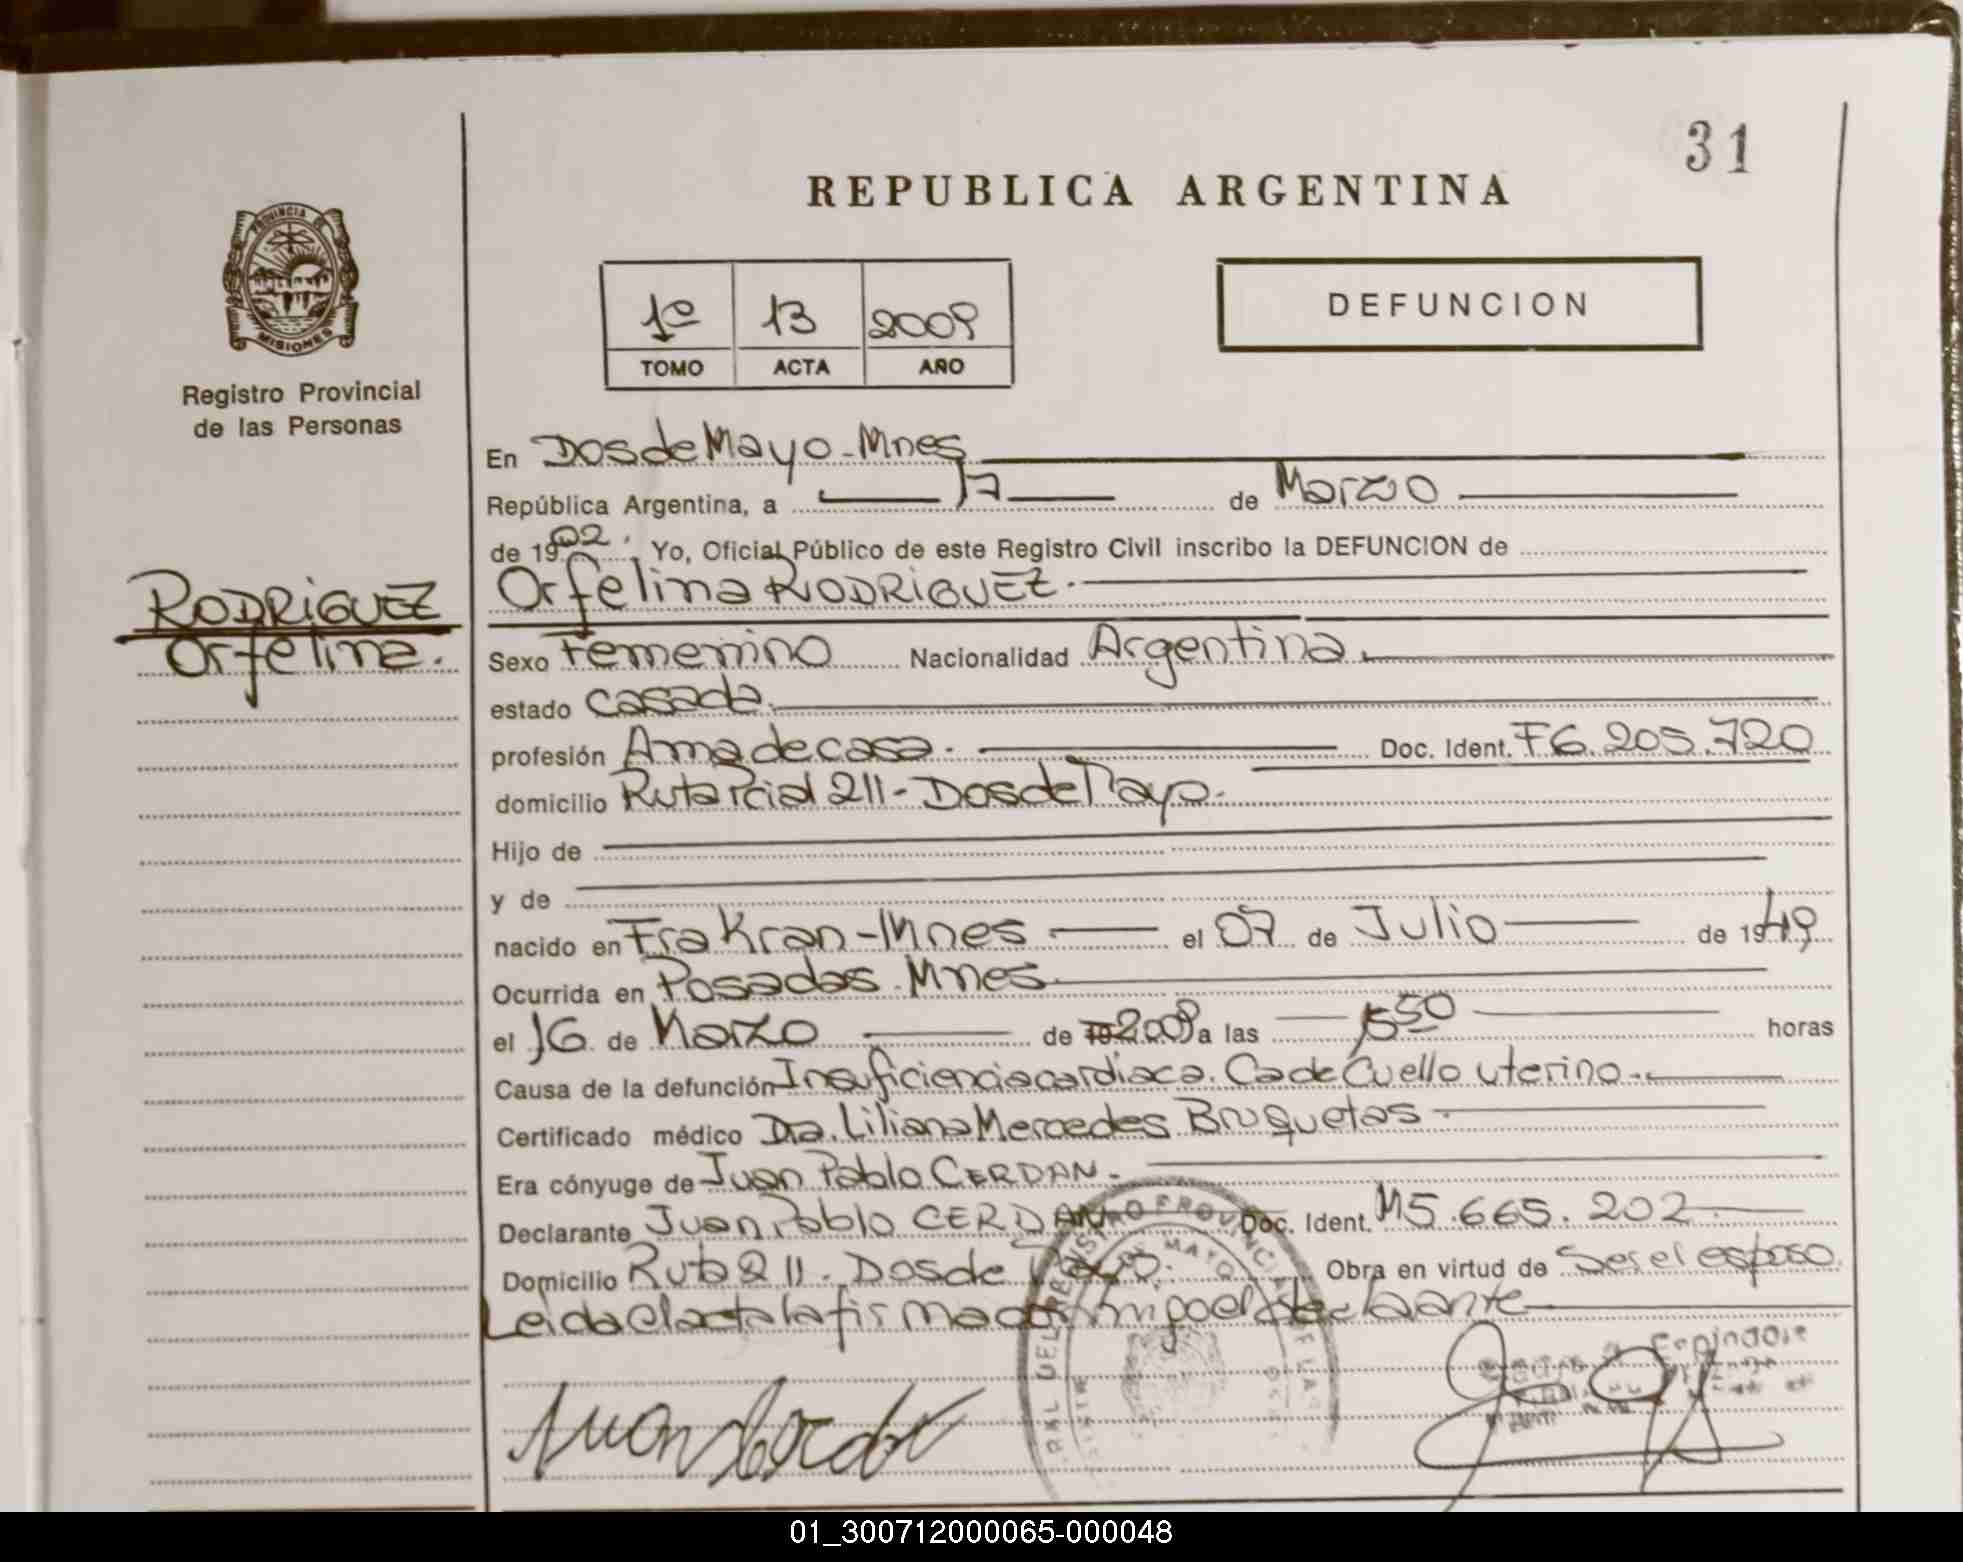 31
REPUBLICA ARGENTINA
PROVINCIA DE
MISIONES
Registro Provincial
de las Personas
1º 13 2009
TOMO ACTA AÑO
DEFUNCION
En Dos de Mayo - Mnes
República Argentina, a 17 de Marzo
de 19 Yo, Oficial Público de este Registro Civil inscribo la DEFUNCION de
Orfelina RODRIGUEZ.
RODRIGUEZ
Orfelina.
Sexo Femenino Nacionalidad Argentina.
estado Casada.
profesión Ama de casa. Doc. Ident. F6.205.720
domicilio Ruta Pcial 211 - Dos de Mayo.
Hijo de
y de
nacido en Frakran - Mnes el 07 de Julio de 1949
Ocurrida en Posadas Mnes
el 16 de Marzo de 2009 a las 1550 horas
Causa de la defunción Insuficiencia cardiaca. Ca de Cuello uterino.
Certificado médico Dra. Liliana Mercedes Bruquetas
Era cónyuge de Juan Pablo CERDAN.
Declarante Juan Pablo CERDAN Doc. Ident. M5.665.202
Domicilio Ruta 211 - Dos de Mayo. Obra en virtud de Ser el esposo
Leida el acta la firma conmigo el declarante
01_300712000065-000048